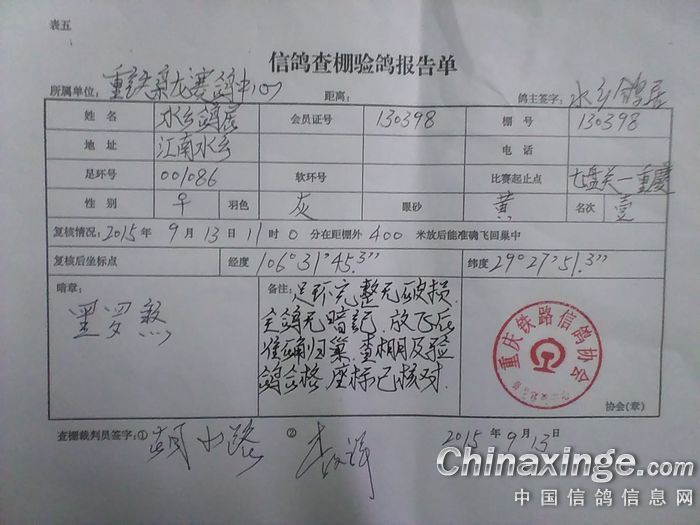 表五
信鸽查棚验鸽报告单
所属单位: 重庆 龙赛鸽中心 距离: 鸽主签字: 水乡鸽居
姓 名 水乡鸽居 会员证号 130398 棚 号 130398
地 址 江南水乡 电 话
足环号 001086 软环号 比赛起止点 七盘关一重庆
性 别 ♀ 羽色 灰 眼砂 黄 名次 壹
复核情况: 2015 年 9 月 13 日 11 时 0 分在距棚外 400 米放后能准确飞回巢中
复核后坐标点 经度 106°31'45.3" 纬度 29°27'51.3"
暗章:
备注: 足环完整无破损.
全鸽无暗记. 放飞后
准确归巢. 查棚及验
鸽合格. 座标已核对.
重庆铁路信鸽协会
协会(章)
查棚裁判员签字: ① 胡小路 ②
2015 年 9 月 13 日
Chinaxinge.com
中国信鸽信息网